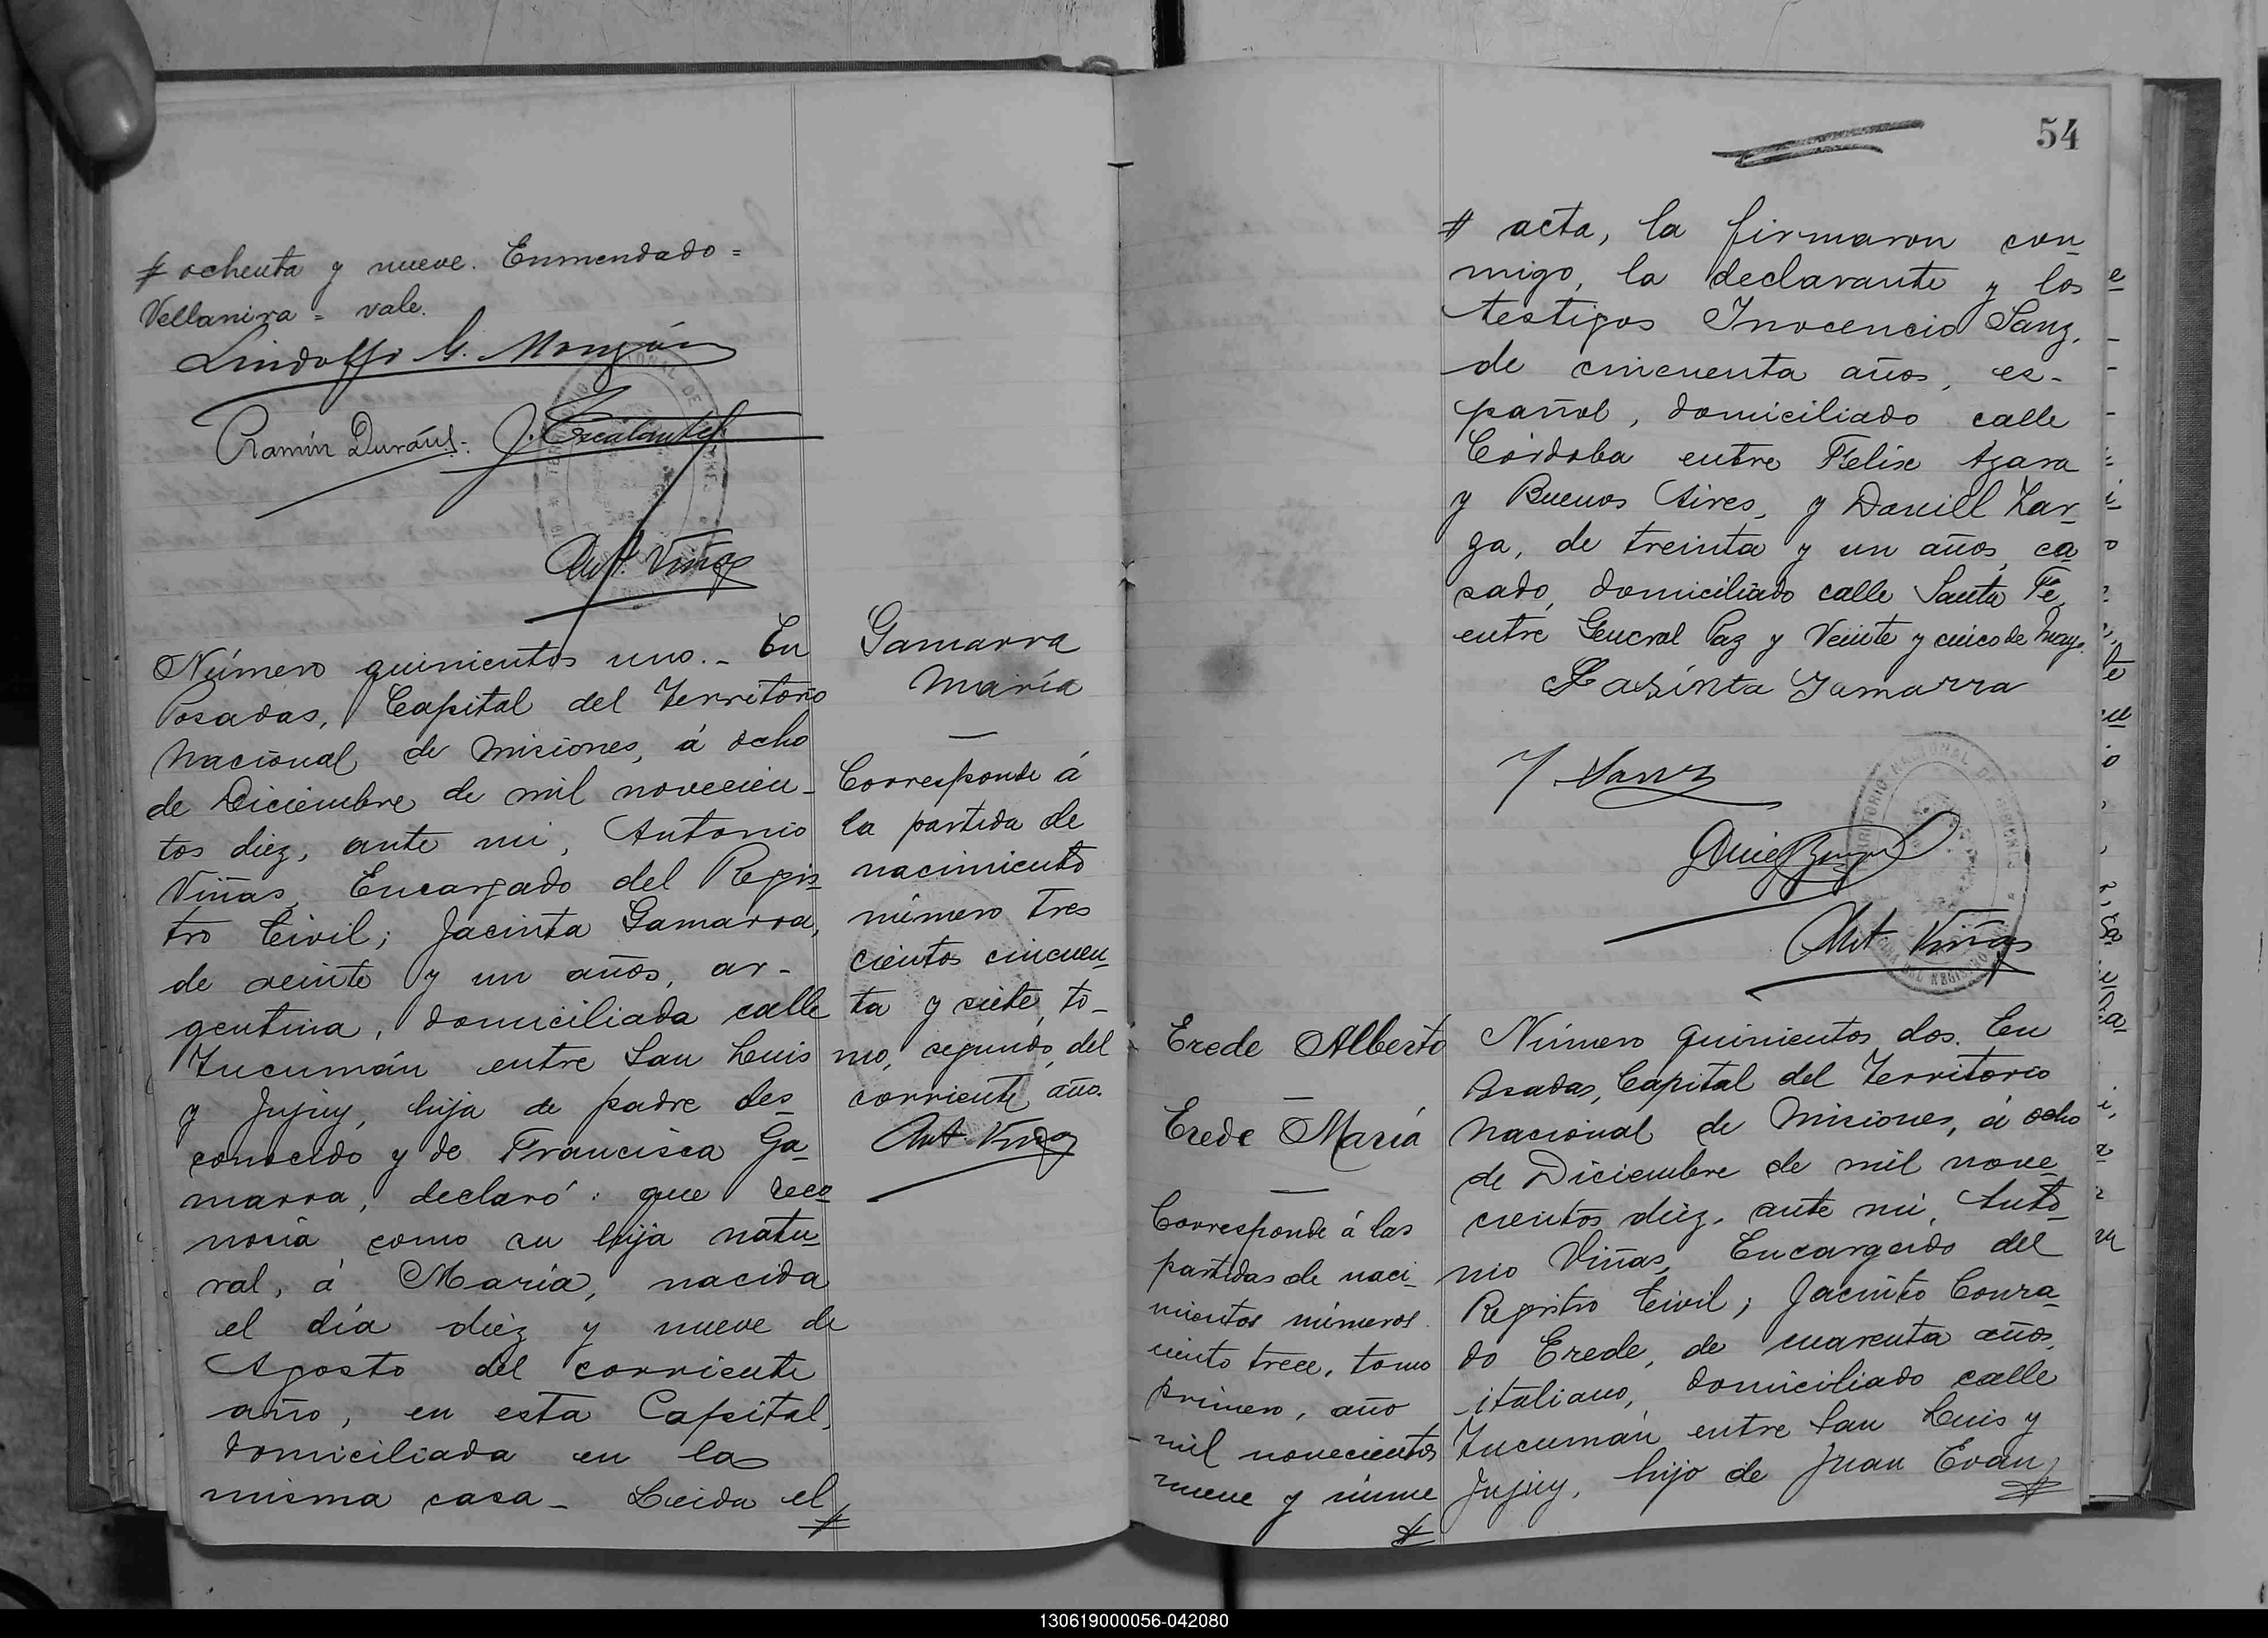 # ochenta y nueve. Enmendado =
Vellanira = vale.
Lindolfo G. Monzón
Ramón Durán
J. Escalante
Ant. Viñas
Número quinientos uno.- En
Posadas, Capital del Territorio
Nacional de Misiones, á ocho
de Diciembre de mil novecien-
tos diez, ante mi, Antonio
Viñas, Encargado del Regis-
tro Civil; Jacinta Gamarra,
de veinte y un años, ar-
gentina, domiciliada calle
Tucumán entre San Luis
y Jujuy, hija de padre des-
conocido y de Francisca Ga-
marra, declaró: que reco-
nocia como su hija natu-
ral, á María, nacida
el día diez y nueve de
Agosto del corriente
año, en esta Capital,
domiciliada en la
misma casa- Leida el
#
Gamarra
María
Corresponde á
la partida de
nacimiento
número tres
cientos cincuen-
ta y siete, to-
mo, segundo, del
corriente año.
Ant. Viñas
54
# acta, la firmaron con-
migo, la declarante y los
testigos Inocencio Sanz,
de cincuenta años, es-
pañol, domiciliado calle
Córdoba entre Felix Azara
y Buenos Aires, y Daniel Zar-
za, de treinta y un años, ca
sado, domiciliado calle Santa Fe,
entre General Paz y Veinte y cinco de Mayo.
Jasinta Gamarra
I Sanz
Ant Viñas
Erede Alberto
Erede María
Corresponde á las
partidas de naci-
mientos números
ciento trece, tomo
primero, año
mil novecientos
nueve y núme
#
Número quinientos dos. En
Posadas, Capital del Territorio
Nacional de Misiones, á ocho
de Diciembre de mil nove-
cientos diez, ante mi, Anto-
nio Viñas, Encargado del
Registro Civil; Jacinto Conra-
do Erede, de cuarenta años,
italiano, domiciliado calle
Tucumán entre San Luis y
Jujuy, hijo de Juan Evan
#
130619000056-042080